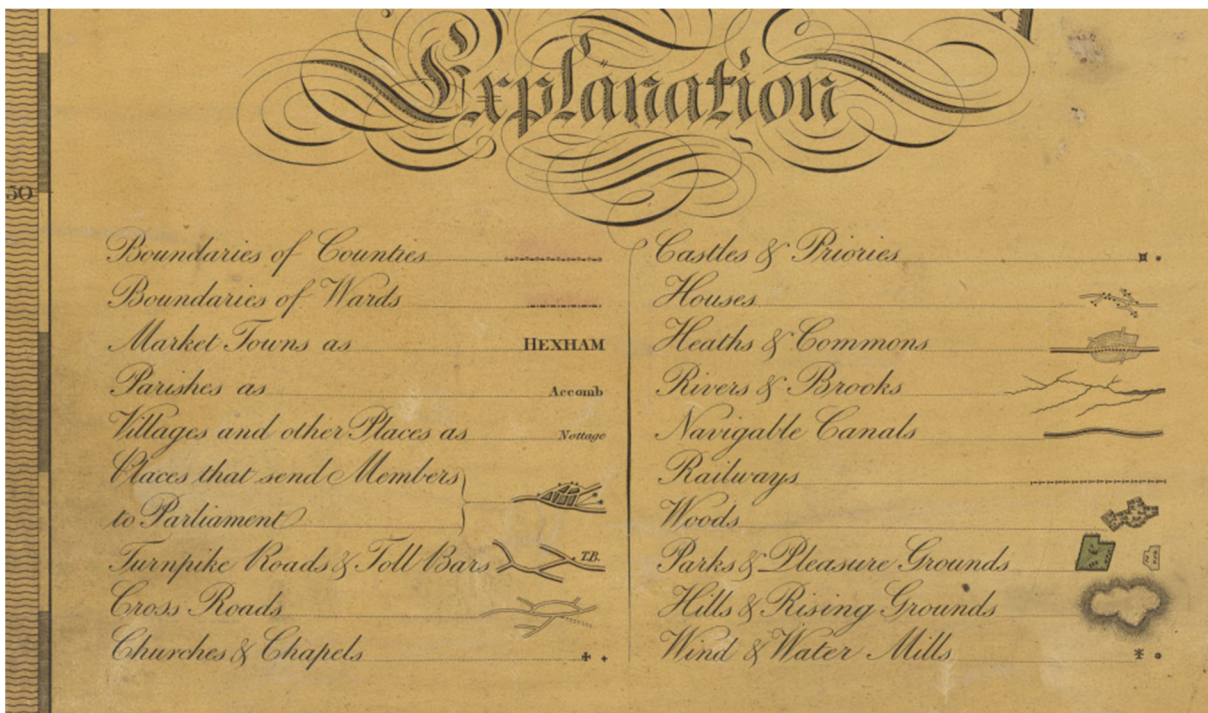 Explanation
50
Boundaries of Counties
Boundaries of Wards
Market Towns as HEXHAM
Parishes as Accomb
Villages and other Places as Nottage
Places that send Members
to Parliament
Turnpike Roads & Toll Bars T.B.
Cross Roads
Churches & Chapels
Castles & Priories
Houses
Heaths & Commons
Rivers & Brooks
Navigable Canals
Railways
Woods
Parks & Pleasure Grounds
Hills & Rising Grounds
Wind & Water Mills